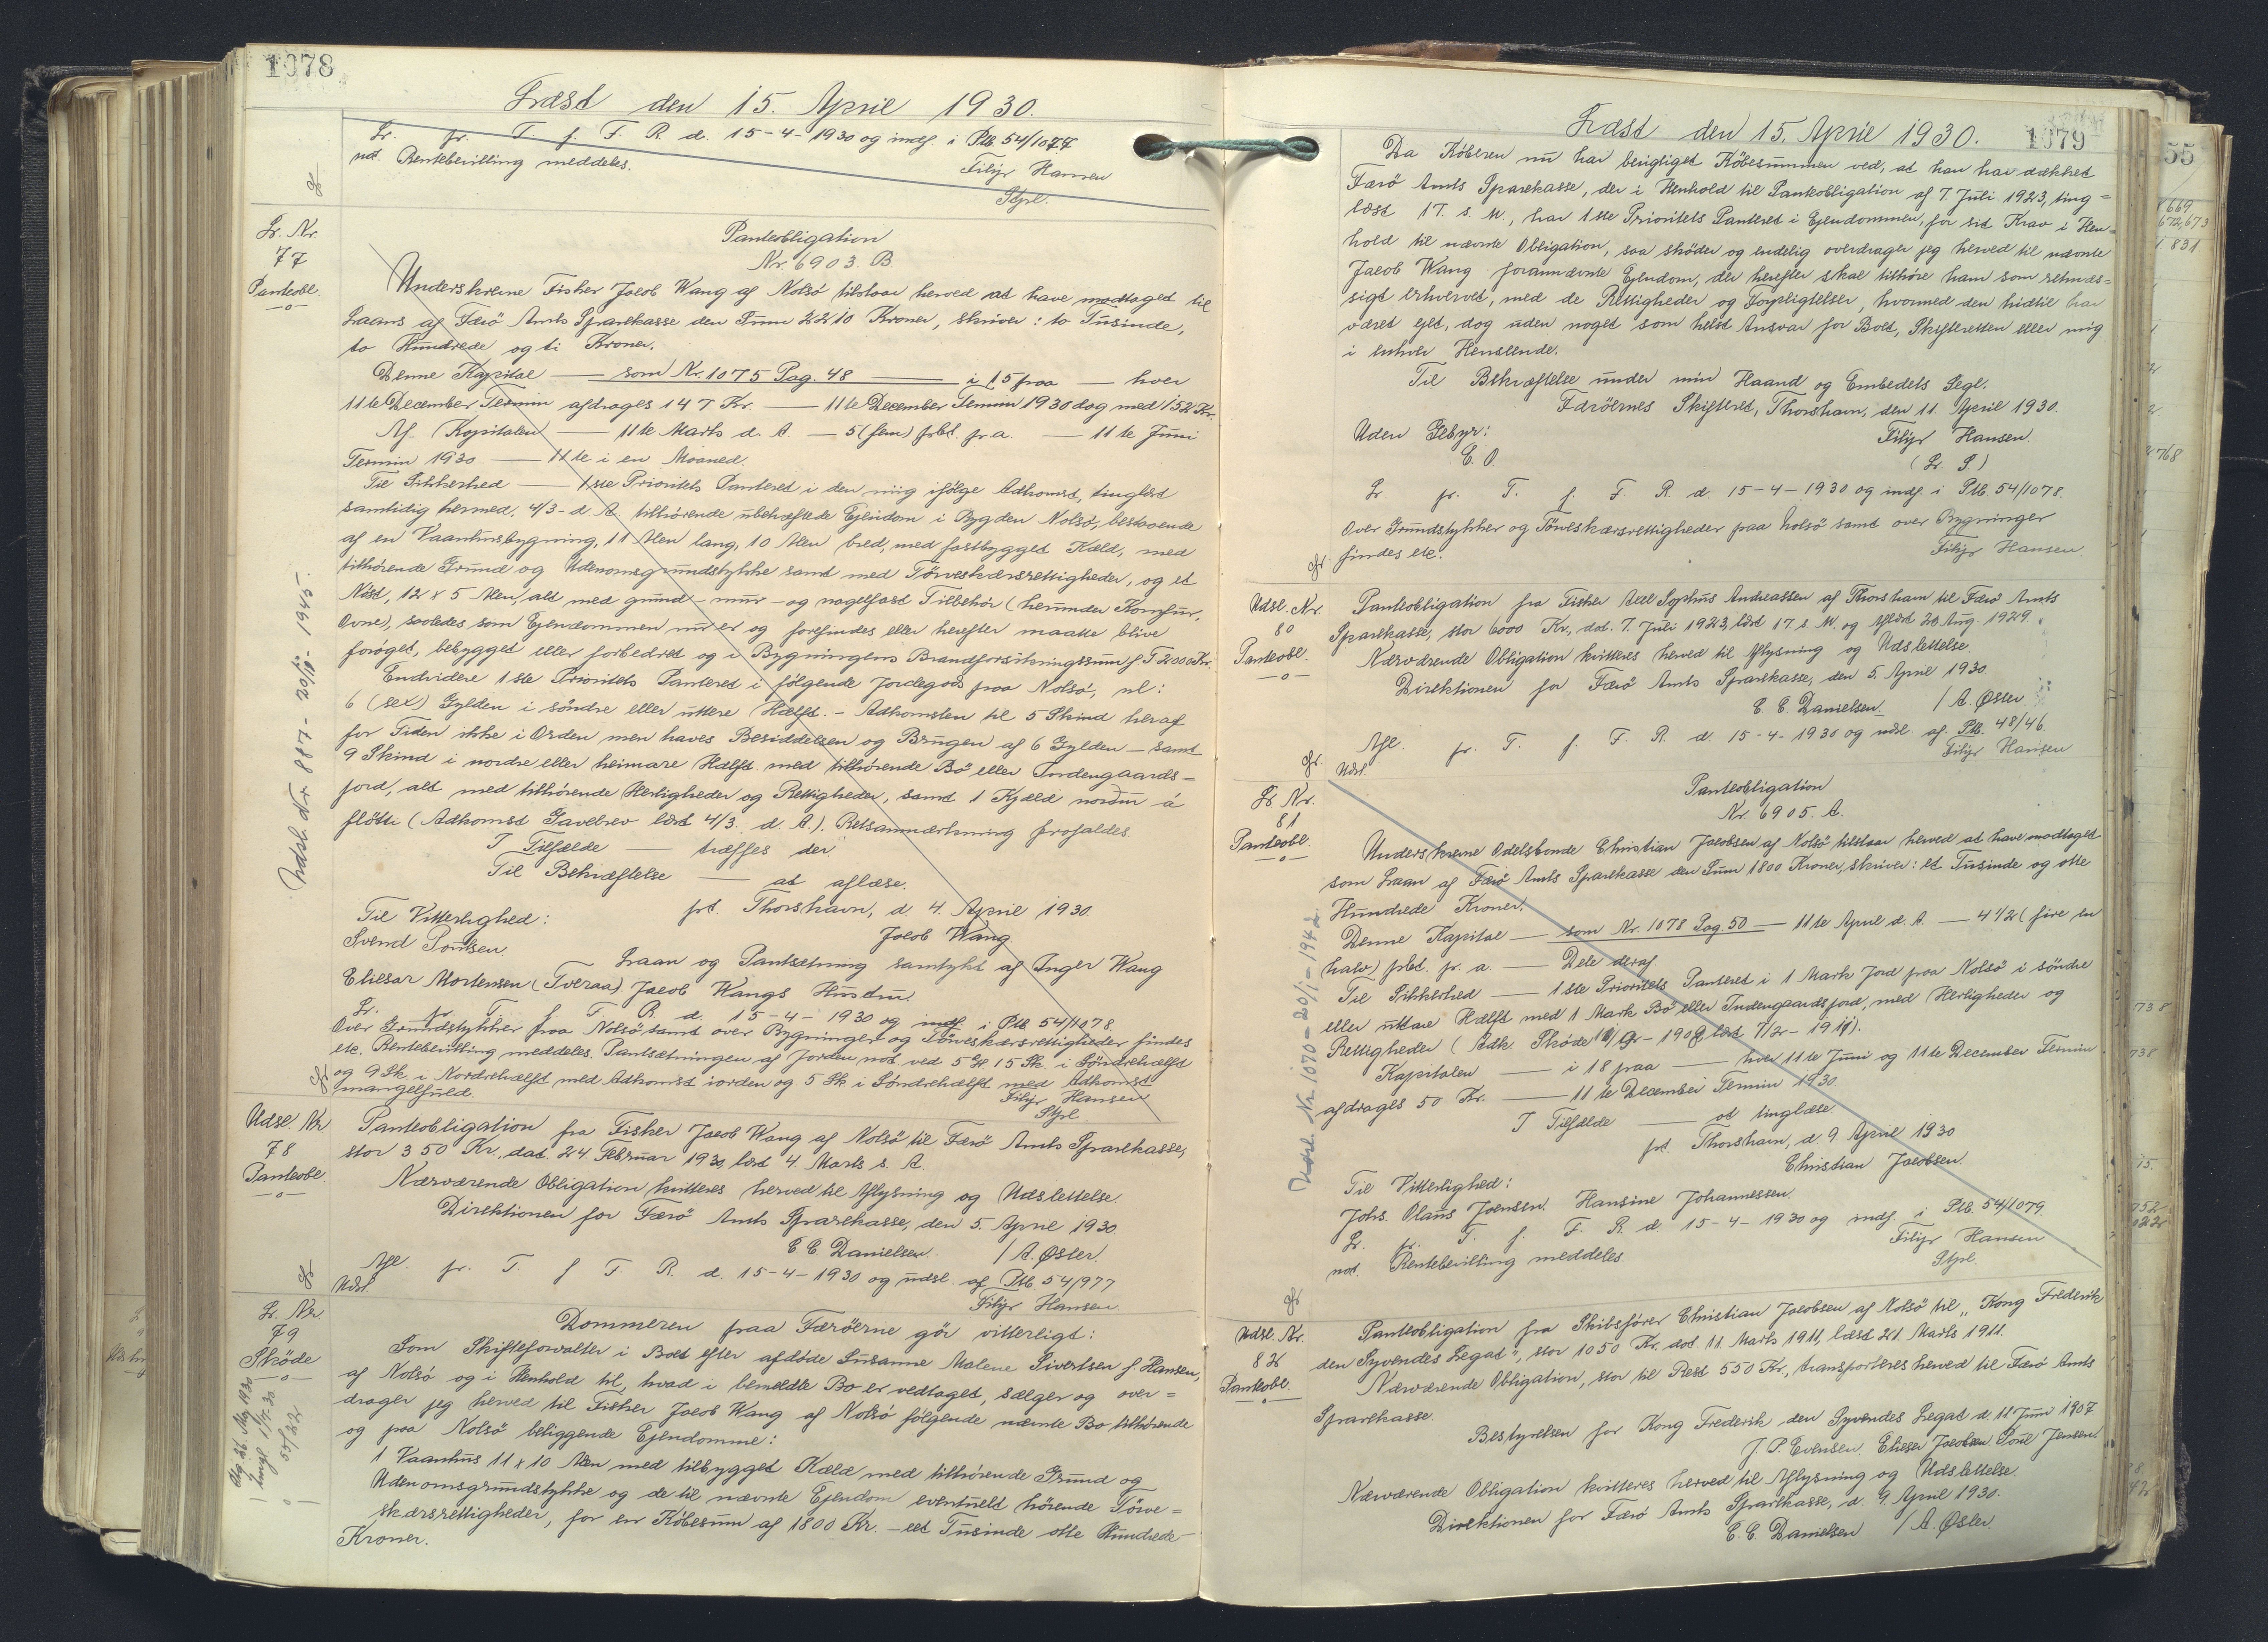 1078
Læst den 15. April 1930.
Lr. pr. T. f. F. R. d. 15-4-1930 og indf. i Ptb. 54/1077
not. Rentebevilling meddeles.
Filip Hansen
Stpl.
Lr. Nr.
77
Panteobl.
Panteobligation
Nr. 6903. B.
Underskrevne Fisker Jacob Wang af Nolsö tilstaar herved at have modtaget til
Laans af Færö Amts Sparekasse den Sum 2210 Kroner, skriver: to Tusinde,
to Hundrede og ti Kroner.
Denne Kapital — som Nr. 1075 Pag. 48 — i 15 paa — hver
11te December Termin afdrages 147 Kr. — 11te December Termin 1930 dog med 152 Kr.
Af Kapitalen — 11te Marts d. A. — 5 (fem) pCt. pr. a. — 11te Juni
Termin 1930 — 11te i en Maaned.
Til Sikkerhed — 1ste Prioritets Panteret i den mig ifölge Adkomst, tinglæst
samtidig hermed, 4/3- d. A. tilhörende ubehæftede Ejendom i Bygden Nolsö, bestaaende
af en Vaanhusbygning, 11 Alen lang, 10 Alen bred, med fastbygget Kæld, med
tilhörende Grund og Udenomsgrundstykke samt med Törveskærsrettigheder, og et
Nöst, 12 x 5 Alen, alt med grund- mur- og nagelfast Tilbehör (herunder Komfur,
Ovne), saaledes som Ejendommen nu er og forefindes eller herefter maatte blive
foröget, bebygget eller forbedret og i Bygningens Brandforsikringssum f. T. 2000 Kr.
Endvidere 1ste Prioritets Panteret i fölgende Jordegods paa Nolsö, nl:
6 (sex) Gylden i söndre eller uttere Hælft. - Adkomsten til 5 Skind heraf
for Tiden ikke i Orden men haves Besiddelsen og Brugen af 6 Gylden — samt
9 Skind i nordre eller heimare Hælft med tilhörende Bö eller Indengaards=
jord, alt med tilhörende Herligheder og Rettigheder, samt 1 Kjæld norður á
fløttu (Adkomst Gavebrev læst 4/3. d. A.). Retsanmærkning frafaldes.
I Tilfælde — træffes der.
Til Bekræftelse — at aflæse.
pt. Thorshavn, d. 4. April 1930.
Jacob Wang
Til Vitterlighed:
Svend Poulsen.
Laan og Pantsætning samtykt af Inger Wang
Eliesar Mortensen (Tveraa). Jacob Wangs Hustru.
Lr. pr. T. f. F. R. d. 15-4-1930 og indf. i Ptb 54/1078.
Over Grundstykker paa Nolsö samt over Bygninger og Törveskærsrettigheder findes
etc. Rentebevilling meddeles. Pantsætningen af Jorden not. ved 5 Gl. 15 Sk. i Söndrehælft
og 9 Sk. i Nordrehælft med Adkomst iorden og 5 Sk. i Söndrehælft med Adkomst
mangelfuld.
Filip Hansen
Stpl.
Udsl. Nr. 887 - 20/11 - 1945.
Udsl. Nr.
78
Panteobl.
Panteobligation fra Fisker Jacob Wang af Nolsö til Færö Amts Sparekasse,
stor 350 Kr., dat. 24. Februar 1930, læst 4. Marts s. A.
Nærværende Obligation kvitteres herved til Aflysning og Udslettelse.
Direktionen for Færö Amts Sparekasse, den 5. April 1930.
C. C. Danielsen. / A. Øster.
Afl. pr. T. f. F. R. d. 15-4-1930 og udsl. af Ptb 54/977
Udsl.
Filip Hansen
Lr. Nr.
79
Sköde
Dommeren paa Færöerne gör vitterligt:
Som Skifteforvalter i Boet efter afdöde Susanne Malene Sivertsen f. Hansen,
af Nolsö og i Henhold til, hvad i bemeldte Bo er vedtaget, sælger og over=
drager jeg herved til Fisker Jacob Wang af Nolsö fölgende nævnte Bo tilhörende
og paa Nolsö beliggende Ejendomme:
1 Vaanhus 11 x 10 Alen med tilbygget Kæld med tilhörende Grund og
Udenomsgrundstykke og de til nævnte Ejendom eventuelt hörende Törve=
skærsrettigheder, for en Köbesum af 1800 Kr. - eet Tusinde otte Hundrede
Kroner.
1079
Læst den 15. April 1930.
Da Köberen nu har berigtiget Köbesummen ved, at han har dækket
Færö Amts Sparekasse, der i Henhold til Panteobligation af 7. Juli 1923, ting=
læst 17. s. M., har 1ste Prioritets Panteret i Ejendommen, for sit Krav i Hen=
hold til nævnte Obligation, saa sköder og endelig overdrager jeg herved til nævnte
Jacob Wang forannævnte Ejendom, der herefter skal tilhöre ham som retmæs=
sigt erhvervet, med de Rettigheder og Forpligtelser, hvormed den hidtil har
været ejet, dog uden noget som helst Ansvar for Boet, Skifteretten eller mig
i enhver Henseende.
Til Bekræftelse under min Haand og Embedets Segl.
Færöernes Skifteret, Thorshavn, den 11. April 1930.
Filip Hansen.
(L. S.)
Uden Gebyr:
E. O.
Lr. pr. T. f. F. R. d. 15-4-1930 og indf. i Ptb. 54/1078.
Over Grundstykker og Törveskærsrettigheder paa Nolsö samt over Bygninger
findes etc.
Filip Hansen.
Udsl. Nr.
80
Panteobl.
Panteobligation fra Fisker Axel Sophus Andreassen af Thorshavn til Færö Amts
Sparekasse, stor 6000 Kr., dat. 7. Juli 1923, læst 17. s. M. og aflæst 20 Aug. 1929.
Nærværende Obligation kvitteres herved til Aflysning og Udslettelse.
Direktionen for Færö Amts Sparekasse, den 5. April 1930.
C. C. Danielsen. / A. Øster.
Afl. pr. T. f. F. R. d. 15-4-1930 og udsl. af Ptb. 48/46.
Udsl.
Filip Hansen
Lr. Nr.
81
Panteobl.
Panteobligation
Nr. 6905. A.
Underskrevne Odelsbonde Christian Jacobsen af Nolsö tilstaar herved at have modtaget
som Laan af Færö Amts Sparekasse den Sum 1800 Kroner, skriver: et Tusinde og otte
Hundrede Kroner.
Denne Kapital — som Nr. 1078 Pag. 50 — 11te April d. A. — 4 1/2 (fire en
halv) pCt. pr. a — Dele deraf.
Til Sikkerhed — 1ste Prioritets Panteret i 1 Mark Jord paa Nolsö i söndre
eller uttare Hælft med 1 Mark Bö eller Indengaardsjord, med Herligheder og
Rettigheder
Kapitalen — i 18 paa — hver 11te Juni og 11te December Termin
afdrages 50 Kr. — 11te December Termin 1930.
I Tilfælde — at tinglæse.
pt. Thorshavn, d. 9. April 1930
Christian Jacobsen.
Til Vitterlighed:
Johs. Olaus Joensen. Hansine Johannessen.
Lr. pr. T. f. F. R. d. 15-4-1930 og indf. i Ptb. 54/1079.
not. Rentebevilling meddeles.
Filip Hansen
Stpl.
Udsl. Nr. 1070 - 20/1 - 1942.
Udsl. Nr.
82
Panteobl.
Panteobligation fra Skibsförer Christian Jacobsen af Nolsö til „Kong Frederik
den Syvendes Legat", stor 1050 Kr. dat. 11. Marts 1911, læst 21. Marts 1911.
Nærværende Obligation, stor til Rest 550 Kr., transporteres herved til Færö Amts
Sparekasse.
Bestyrelsen for Kong Frederik den Syvendes Legat d. 11. Juni 1907
J. P. Evensen. Elieser Jacobsen. Poul Jensen.
Nærværende Obligation kvitteres herved til Aflysning og Udslettelse.
Direktionen for Færö Amts Sparekasse, d. 9. April 1930.
C. C. Danielsen / A. Øster.
55